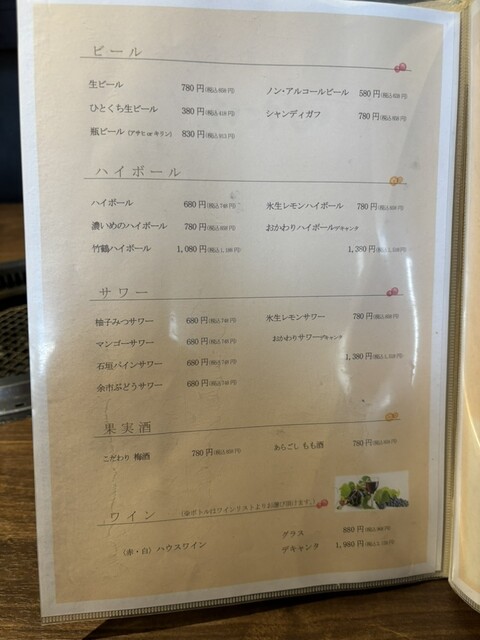 ビール
生ビール 780円(税込858円) ノン・アルコールビール 580円(税込638円)
ひとくち生ビール 380円(税込418円) シャンディガフ 780円(税込858円)
瓶ビール (アサヒorキリン) 830円(税込913円)
ハイボール
ハイボール 680円(税込748円) 氷生レモンハイボール 780円(税込858円)
濃いめのハイボール 780円(税込858円) おかわりハイボールデキャンタ
竹鶴ハイボール 1,080円(税込1,188円) 1,380円(税込1,518円)
サワー
柚子みつサワー 680円(税込748円) 氷生レモンサワー 780円(税込858円)
マンゴーサワー 680円(税込748円) おかわりサワーデキャンタ
石垣パインサワー 680円(税込748円) 1,380円(税込1,518円)
余市ぶどうサワー 680円(税込748円)
果実酒
こだわり 梅酒 780円(税込858円) あらごし もも酒 780円(税込858円)
ワイン (※ボトルはワインリストよりお選び頂けます。)
(赤・白) ハウスワイン グラス 880円(税込968円)
デキャンタ 1,980円(税込2,178円)